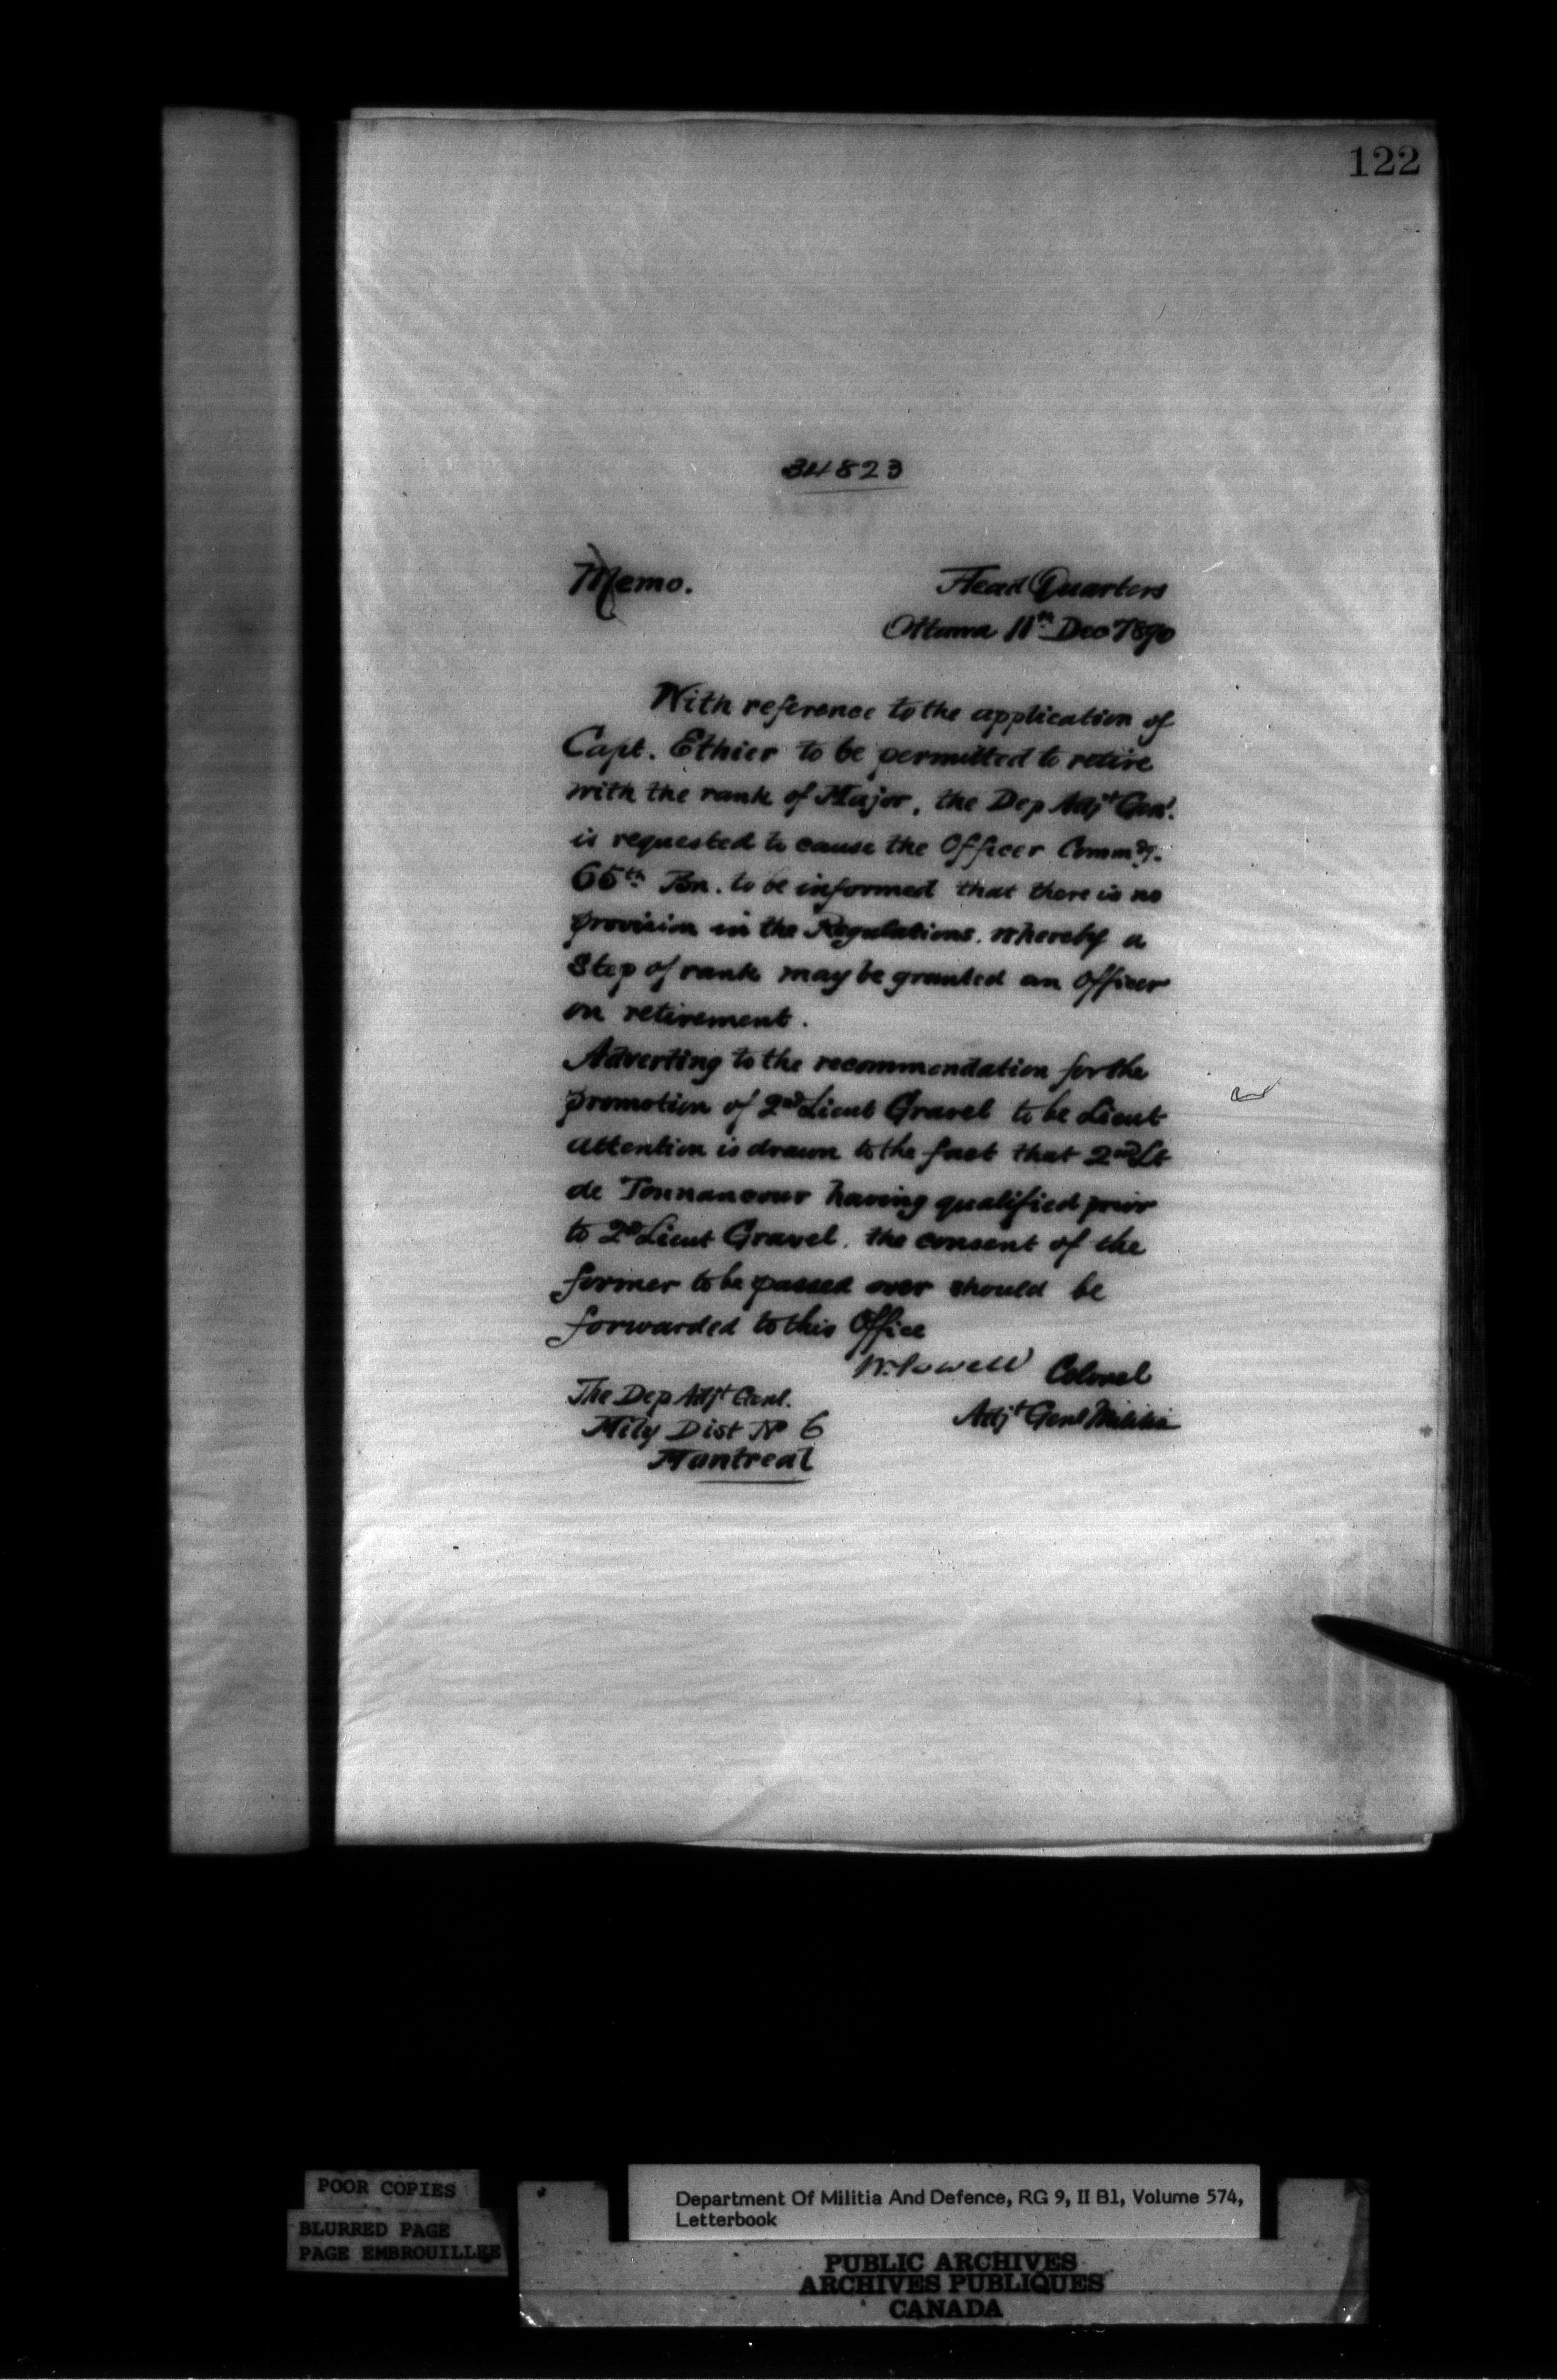 122
34823
Memo.
Head Quarters
Ottawa 11th Dec 1890
With reference to the application of
Capt. Ethier to be permitted to retire
with the rank of Major, the Dep Adjt Genl.
is requested to cause the Officer Commdg.
65th Bn. to be informed that there is no
provision in the Regulations, whereby a
Step of rank may be granted an Officer
on retirement.
Adverting to the recommendation for the
promotion of 2nd Lieut Gravel to be Lieut
attention is drawn to the fact that 2nd Lt
de Tonnancour having qualified prior
to 2d Lieut Gravel. the consent of the
former to be passed over should be
forwarded to this Office
W. Powell Colonel
Adjt Genl Militia
The Dep Adjt Genl.
Mily Dist No 6
Montreal
POOR COPIES
BLURRED PAGE
PAGE EMBROUILLEE
Department Of Militia And Defence, RG 9, II B1, Volume 574,
Letterbook
PUBLIC ARCHIVES
ARCHIVES PUBLIQUES
CANADA